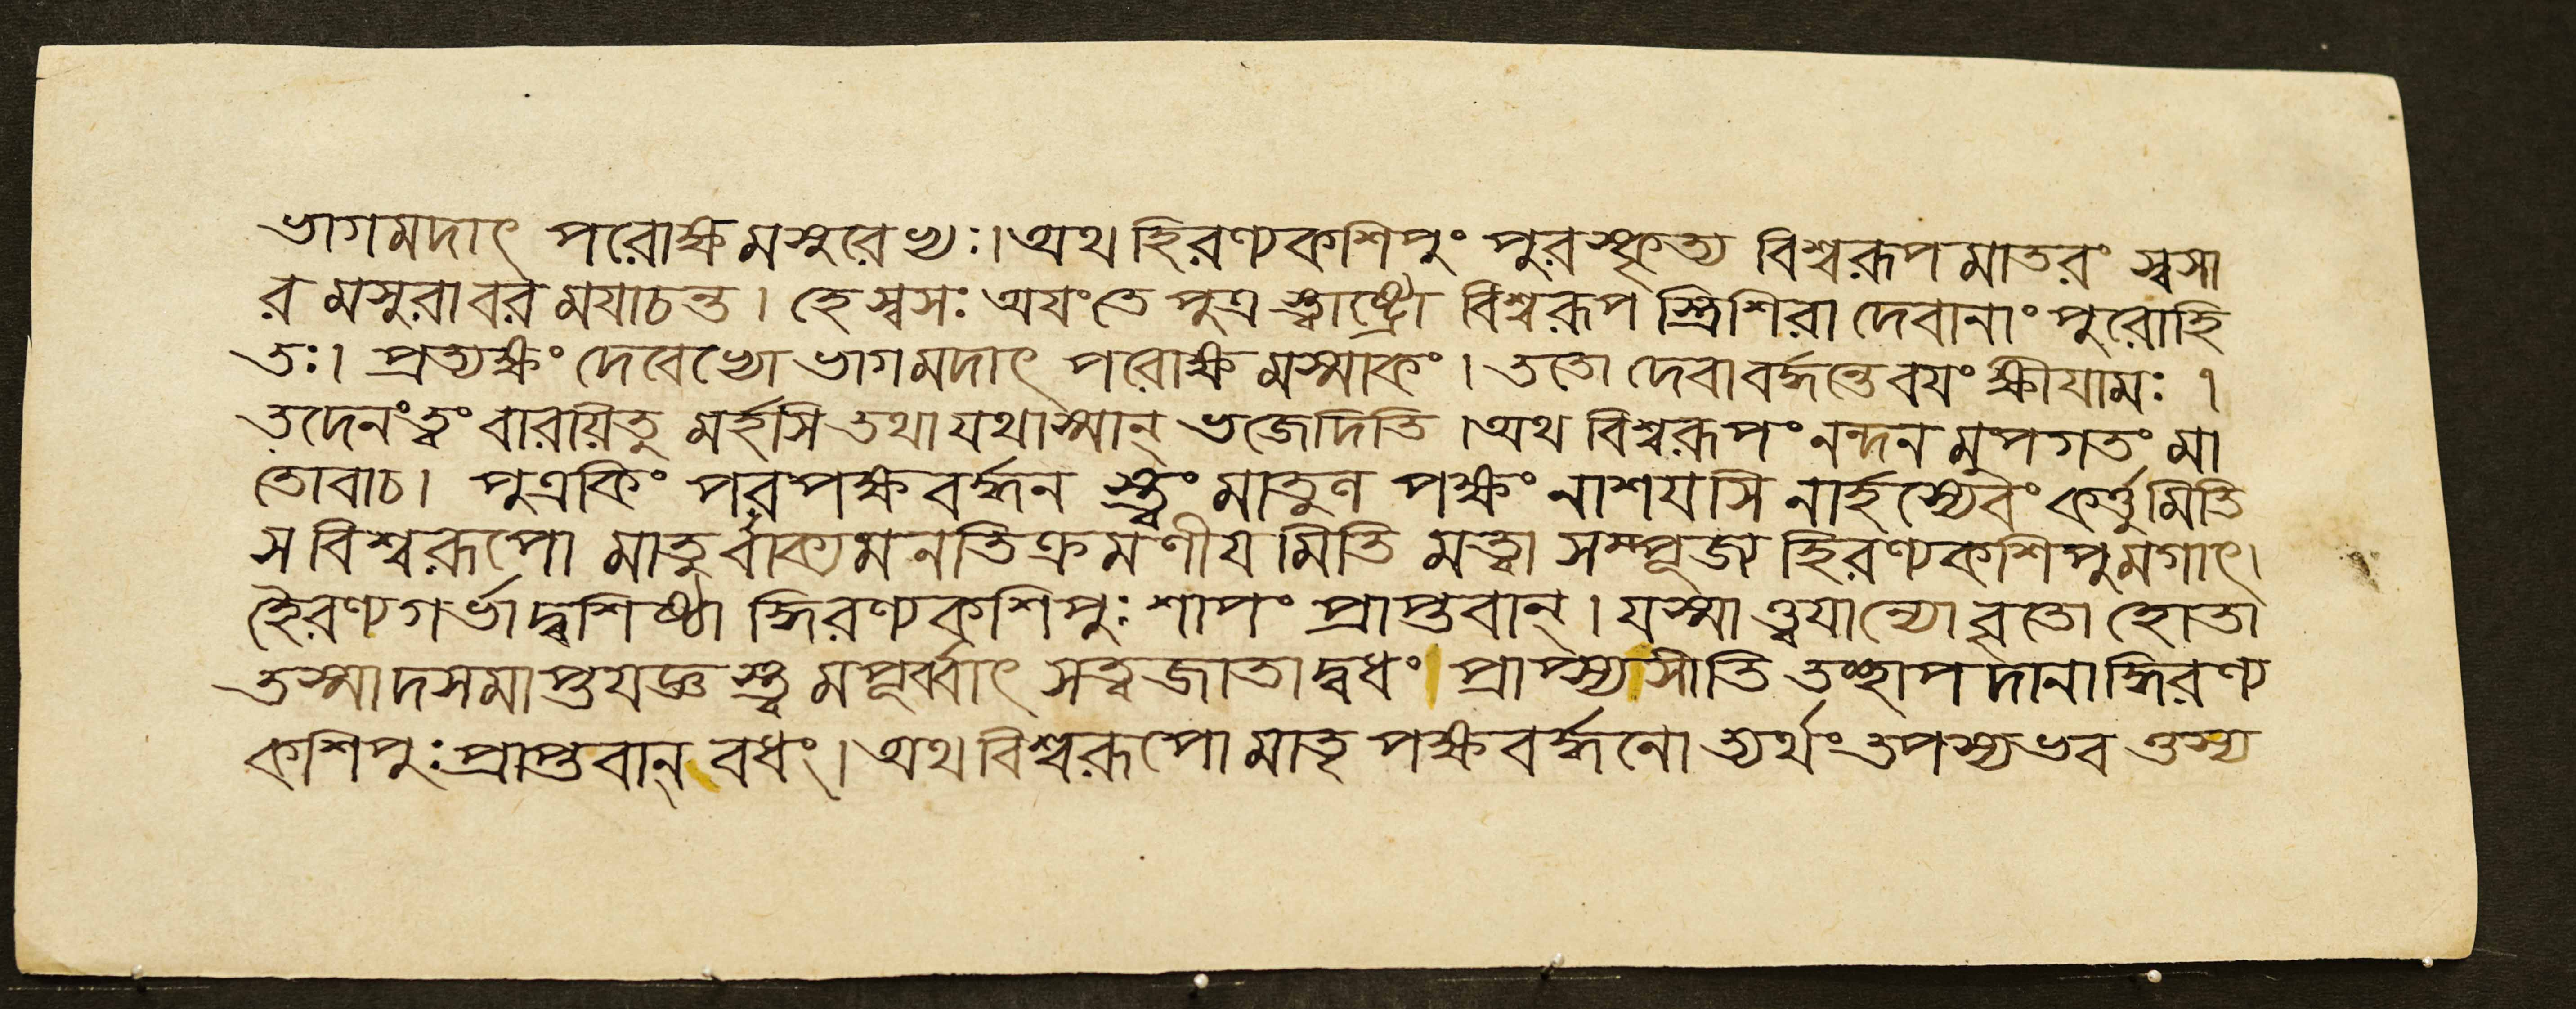 ভাগমদাৎ পরোক্ষমসুরেভ্যঃ। অথ হিরণ্যকশিপুং পুরস্কৃত্য বিশ্বরূপমাতরং স্বসা
রমসুরাবরমযাচন্ত। হে স্বসঃ অযংতে পুত্র স্ত্বাষ্ট্রো বিশ্বরূপ স্ত্রিশিরা দেবানাং পুরোহি
তঃ। প্রত্যক্ষং দেবেভ্যো ভাগমদাৎ পরোক্ষমস্মাকং। ততো দেবাবর্দ্ধন্তে বযং ক্ষীযামঃ ।
তদেনংত্বং বারয়িতু মর্হসি তথা যথাস্মান্ ভজেদিতি । অথ বিশ্বরূপং নন্দনমুপগতং মা
তোবাচ। পুত্রকিং পরপক্ষবর্দ্ধন স্ত্বং মাতুণ পক্ষং নাশযসি নার্হস্যেবং কর্ত্তুমিতি
স বিশ্বরূপো মাতুর্বাক্যমনতিক্রমণীযমিতি মত্বা সম্পূজ্য হিরণ্যকশিপুমগাৎ।
হৈরণ্যগর্ভাদ্বশিষ্ঠা দ্ধিরণ্যকশিপুঃ শাপং প্রাপ্তবান্। যস্মাত্ত্বযান্যো বৃতো হোতা
তস্মাদসমাপ্তযজ্ঞ স্ত্ব মপূর্ব্বাৎ সত্ত্বজাতাদ্বধং প্রাপ্স্যসীতি তচ্ছাপদানাদ্ধিরণ্য
কশিপুঃ প্রাপ্তবান্ বধং। অথ বিশ্বরূপো মাতৃপক্ষবর্দ্ধনো ত্যর্থং তপস্যভব ত্তস্য